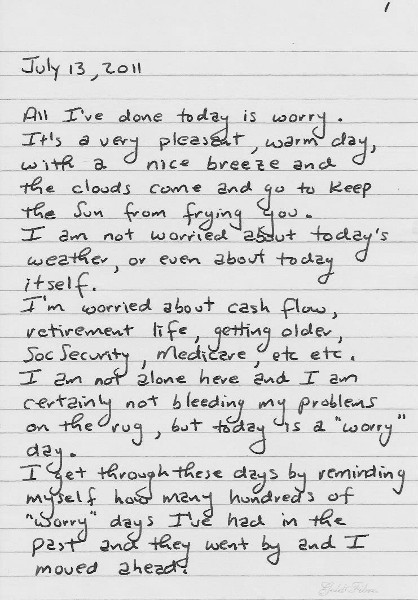 1
July 13, 2011
All I've done today is worry.
It's a very pleasant, warm day,
with a nice breeze and
the clouds come and go to keep
the Sun from frying you.
I am not worried about today's
weather, or even about today
itself.
I'm worried about cash flow,
retirement life, getting older,
Soc Security, Medicare, etc etc.
I am not alone here and I am
certainly not bleeding my problems
on the rug, but today is a "worry"
day.
I get through these days by reminding
myself how many hundreds of
"worry" days I've had in the
past and they went by and I
moved ahead.